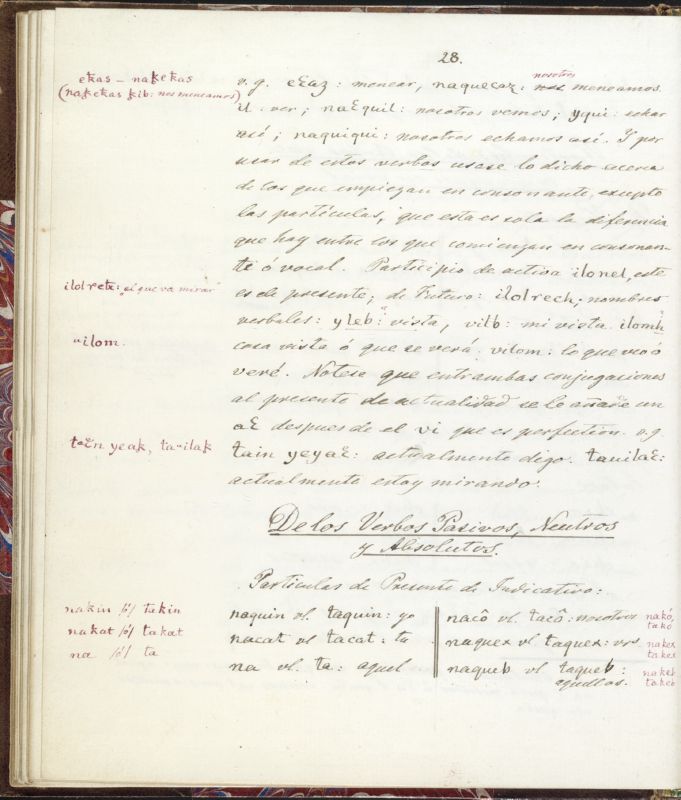 28.
ekas – nakekas
(nakekas kib: nos meneamos)
v.g. eɛaz: menear, naqueɛaz: nos meneamos.
nosotros
il: ver; naɛquil: nosotros vemos; yqui: echar
naquiqui: nosotros echamos así. Y por
usar de estos verbos usase lo dicho acerca
de los que empiezan en consonante, excepto
las partículas, que esta es sola la diferencia
que hay entre los que comienzan en consonan-
te ó vocal. Participio de activa ilonel, este
ilolrech: el que va mirar
es de presente; de Futuro: ilolrech; nombres
verbales: yleb: vista, vilb: mi vista. ilomh
"ilom.
cosa vista ó que se verá. vilom: lo que veo ó
veré. Notese que entrambas conjugaciones
al presente de actualidad se lo añade un
aɛ despues de el vi que es perfection. v.g.
yeak, ta"ilak
tain yeyaɛ: actualmente digo. tauilaɛ:
actualmente estoy mirando.
De los Verbos Pasivos, Neutros
y Absolutos.
Particulas de Presente de Indicativo:
nakin /ó/ takin
naquin vl. taquin: yo
nacô vl. tacô: nosotros
nakó, takó
nakat /ó/ takat
nacat vl tacat: tu
naquex vl. taquex: vrs
nakex takex
na /ó/ ta
na vl. ta: aquel
naqueb vl taqueb:
aquellos.
nakeb takeb